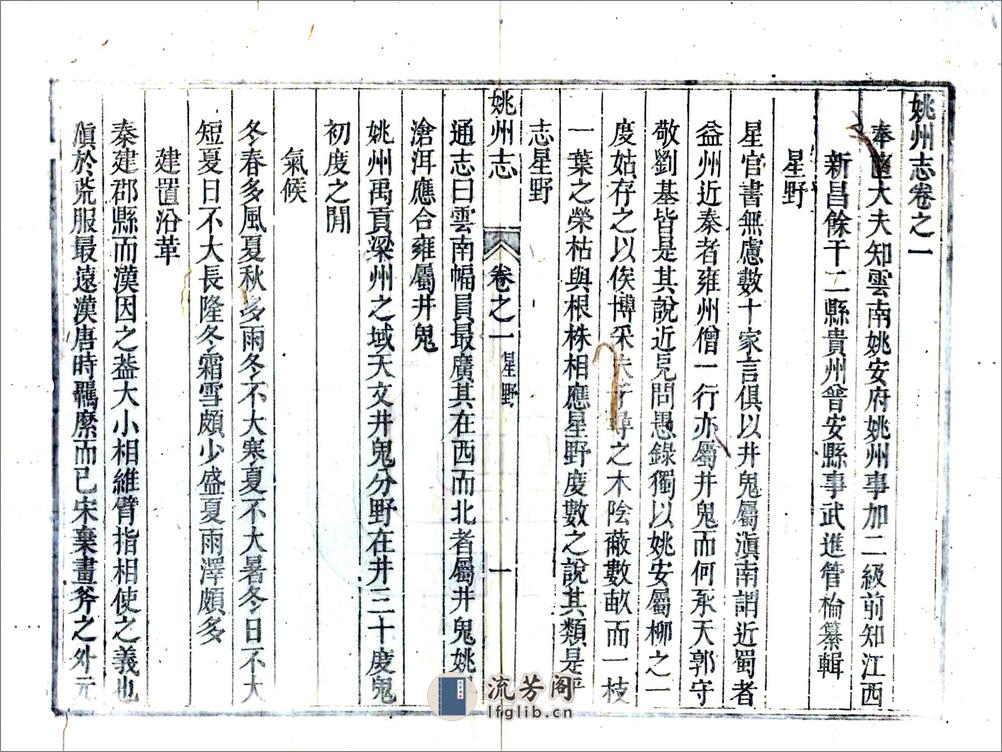 姚州志卷之一
奉直大夫知雲南姚安府姚州事加二級前知江西
新昌餘干二縣貴州普安縣事武進管棆纂輯
星野
星官書無慮數十家言俱以井鬼屬滇南謂近蜀者
益州近秦者雍州僧一行亦屬井鬼而何承天郭守
敬劉基皆是其說近見問愚錄獨以姚安屬柳之一
度姑存之以俟博采夫千尋之木陰蔽數畝而一枝
一葉之榮枯與根株相應星野度數之說其類是乎
志星野
姚州志 卷之一 星野 一
通志曰雲南幅員最廣其在西而北者屬井鬼姚
滄洱應合雍屬井鬼
姚州禹貢梁州之域天文井鬼分野在井三十度鬼
初度之間
氣候
冬春多風夏秋多雨冬不大寒夏不大暑冬日不大
短夏日不大長隆冬霜雪頗少盛夏雨澤頗多
建置沿革
秦建郡縣而漢因之蓋大小相維臂指相使之義也
滇於荒服最遠漢唐時羈縻而已宋棄畫斧之外元
流芳阁
lfglib.cn